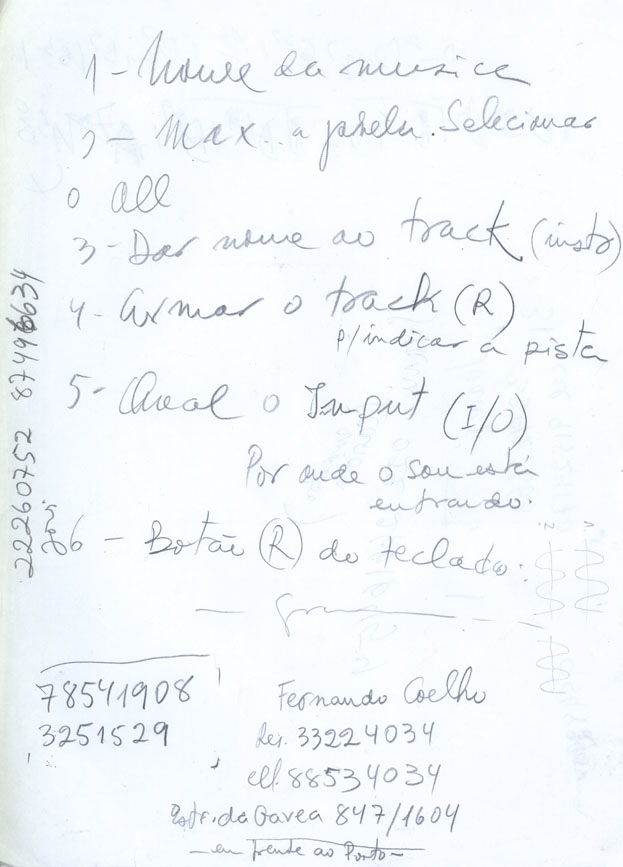 1 - Nome da musica
2 - Max. a janela. Selecionar
o All
3 - Dar nome ao track (instr)
4 - Armar o track (R)
p/indicar a pista
5 - Qual o Input (I/O)
Por onde o som está
entrando.
6 - Botão (R) do teclado.
22260752
78541908
3251529
Fernando Coelho
Res. 33224034
cel. 88534034
Estr. da Gavea 847/1604
- em frente ao Porto -